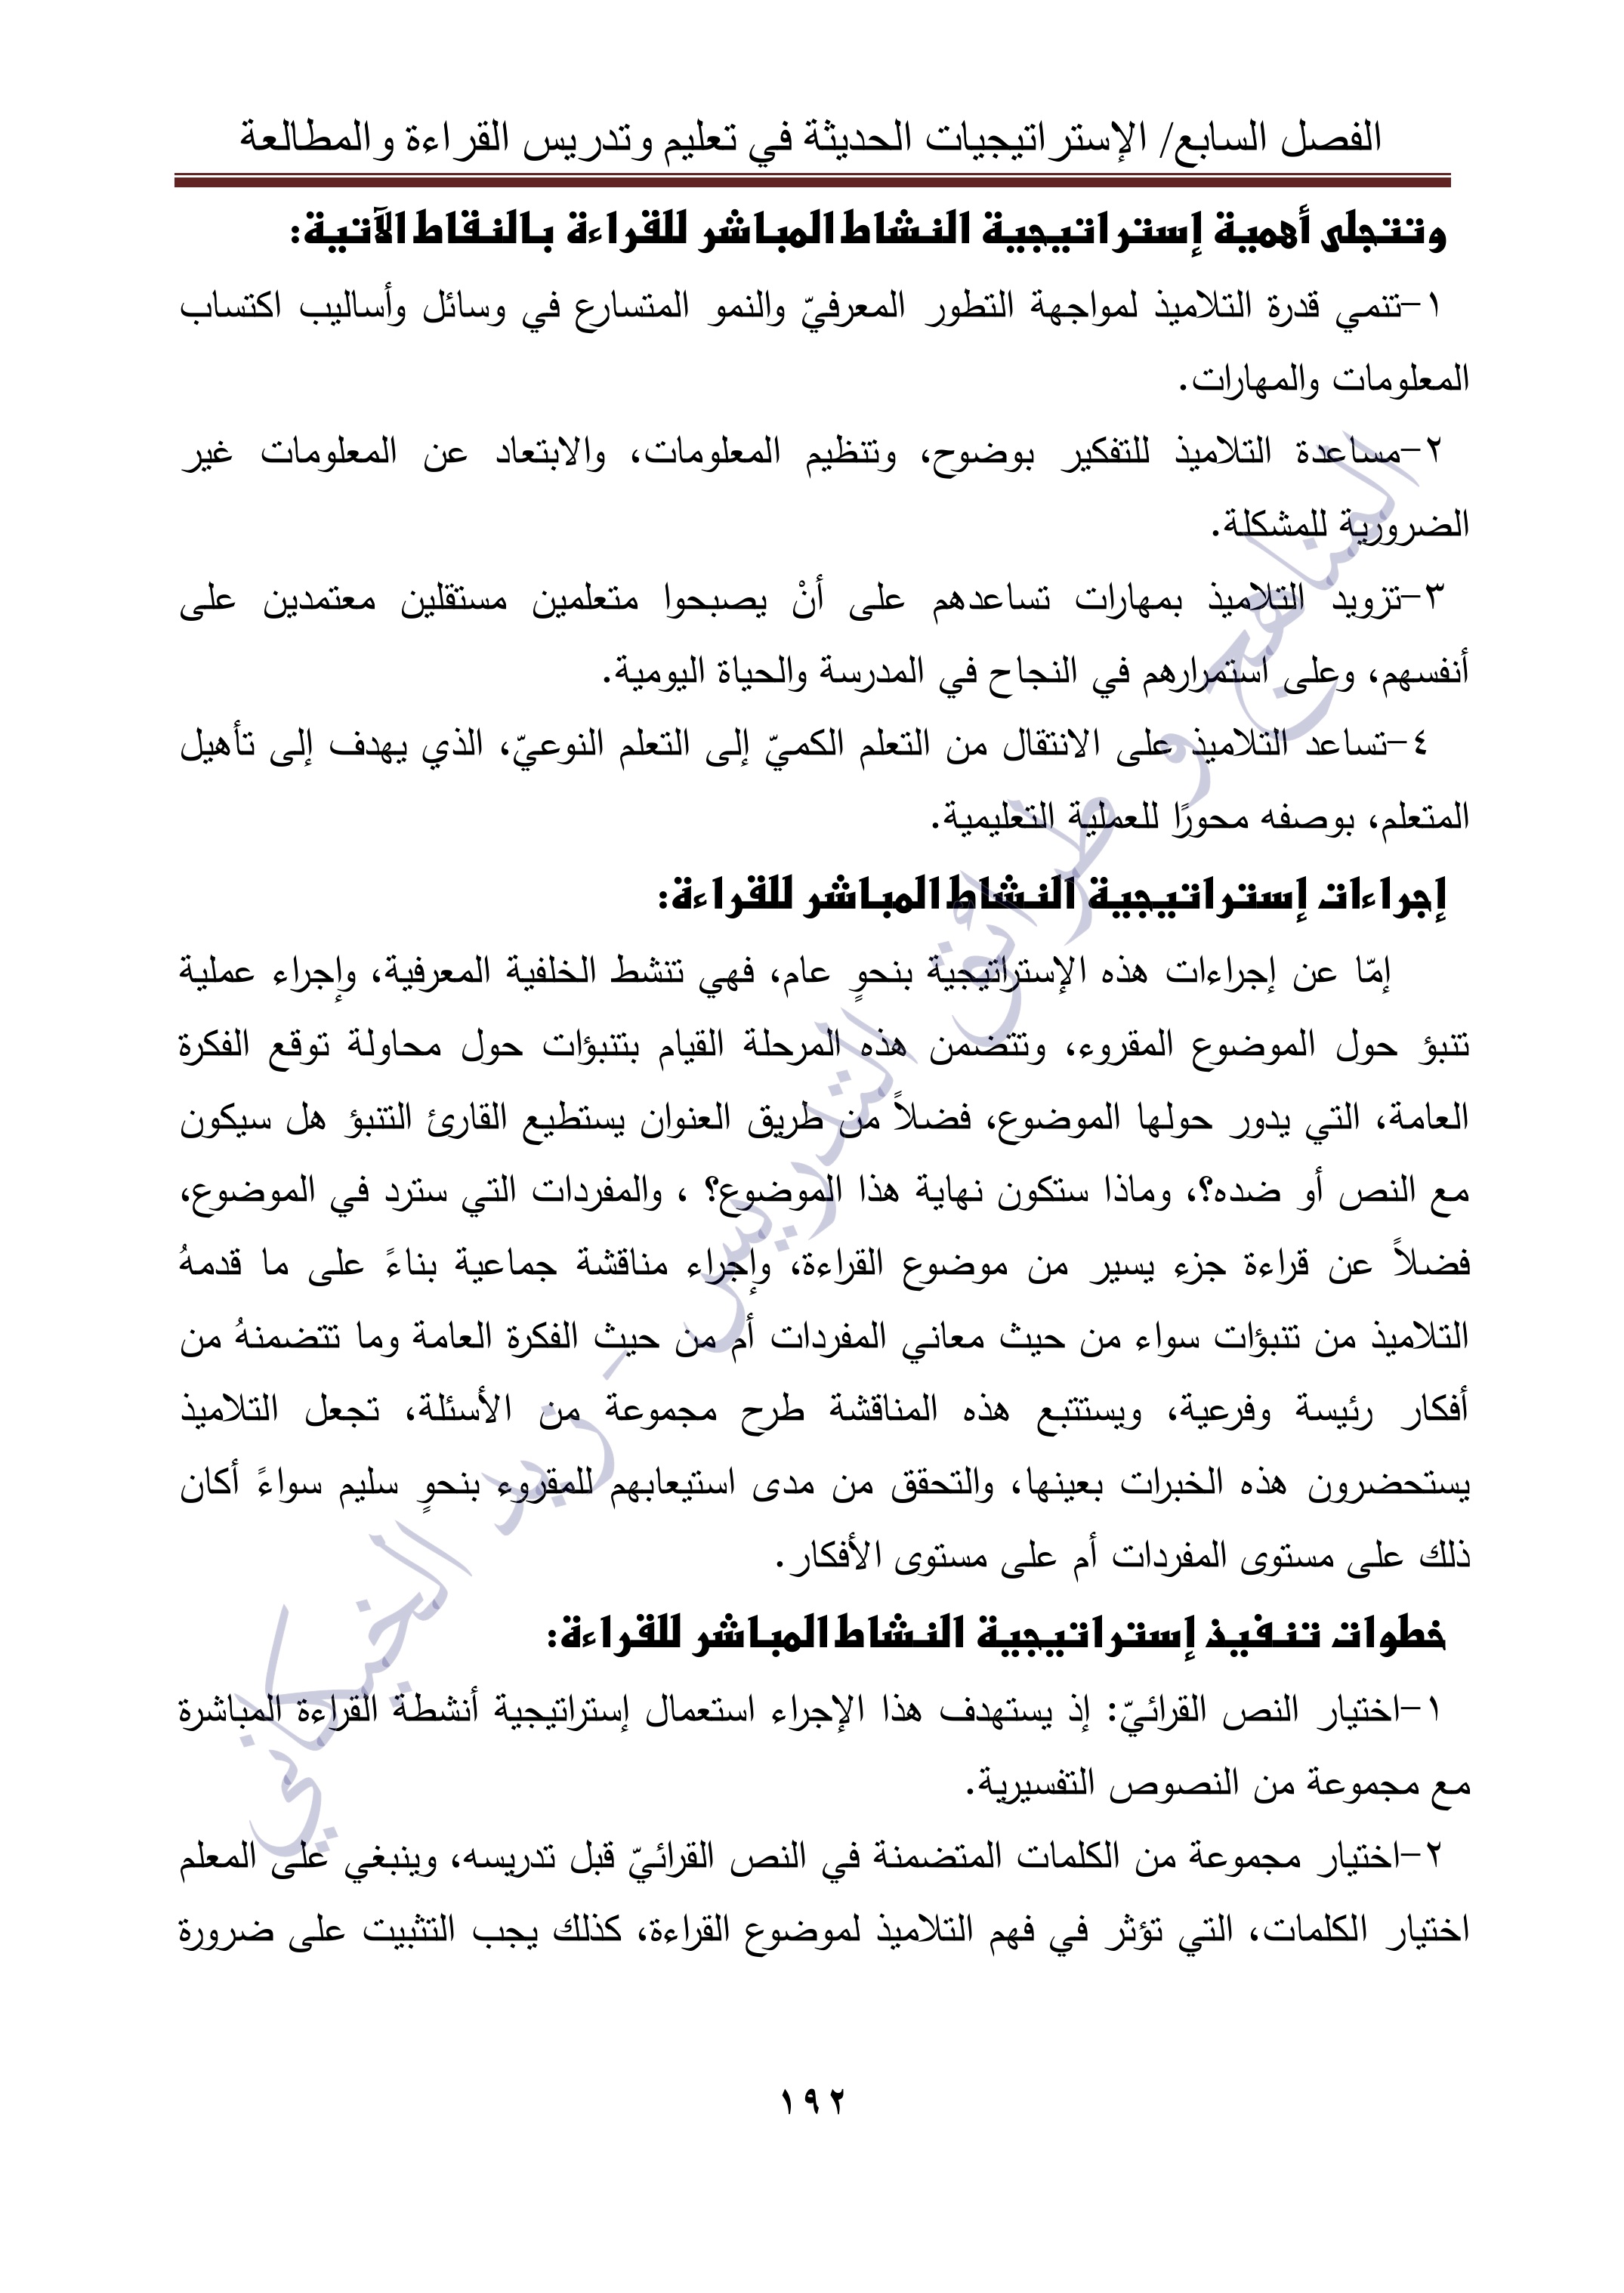 الفصل السابع/ الإستراتيجيات الحديثة في تعليم وتدريس القراءة والمطالعة
وتتجلى أهمية إستراتيجية النشاط المباشر للقراءة بالنقاط الآتية:
١-تنمي قدرة التلاميذ لمواجهة التطور المعرفيّ والنمو المتسارع في وسائل وأساليب اكتساب
المعلومات والمهارات.
٢-مساعدة التلاميذ للتفكير بوضوح، وتنظيم المعلومات، والابتعاد عن المعلومات غير
الضرورية للمشكلة.
٣-تزويد التلاميذ بمهارات تساعدهم على أنْ يصبحوا متعلمين مستقلين معتمدين على
أنفسهم، وعلى استمرارهم في النجاح في المدرسة والحياة اليومية.
٤-تساعد التلاميذ على الانتقال من التعلم الكميّ إلى التعلم النوعيّ، الذي يهدف إلى تأهيل
المتعلم، بوصفه محورًا للعملية التعليمية.
إجراءات إستراتيجية النشاط المباشر للقراءة:
إمّا عن إجراءات هذه الإستراتيجية بنحوٍ عام، فهي تنشط الخلفية المعرفية، وإجراء عملية
تنبؤ حول الموضوع المقروء، وتتضمن هذه المرحلة القيام بتنبؤات حول محاولة توقع الفكرة
العامة، التي يدور حولها الموضوع، فضلاً من طريق العنوان يستطيع القارئ التنبؤ هل سيكون
مع النص أو ضده؟، وماذا ستكون نهاية هذا الموضوع؟ ، والمفردات التي سترد في الموضوع،
فضلاً عن قراءة جزء يسير من موضوع القراءة، وإجراء مناقشة جماعية بناءً على ما قدمهُ
التلاميذ من تنبؤات سواء من حيث معاني المفردات أم من حيث الفكرة العامة وما تتضمنهُ من
أفكار رئيسة وفرعية، ويستتبع هذه المناقشة طرح مجموعة من الأسئلة، تجعل التلاميذ
يستحضرون هذه الخبرات بعينها، والتحقق من مدى استيعابهم للمقروء بنحوٍ سليم سواءً أكان
ذلك على مستوى المفردات أم على مستوى الأفكار.
خطوات تنفيذ إستراتيجية النشاط المباشر للقراءة:
١-اختيار النص القرائيّ: إذ يستهدف هذا الإجراء استعمال إستراتيجية أنشطة القراءة المباشرة
مع مجموعة من النصوص التفسيرية.
٢-اختيار مجموعة من الكلمات المتضمنة في النص القرائيّ قبل تدريسه، وينبغي على المعلم
اختيار الكلمات، التي تؤثر في فهم التلاميذ لموضوع القراءة، كذلك يجب التثبيت على ضرورة
١٩٢
المناهج و طرائق التدريس - زيد الخيكاني